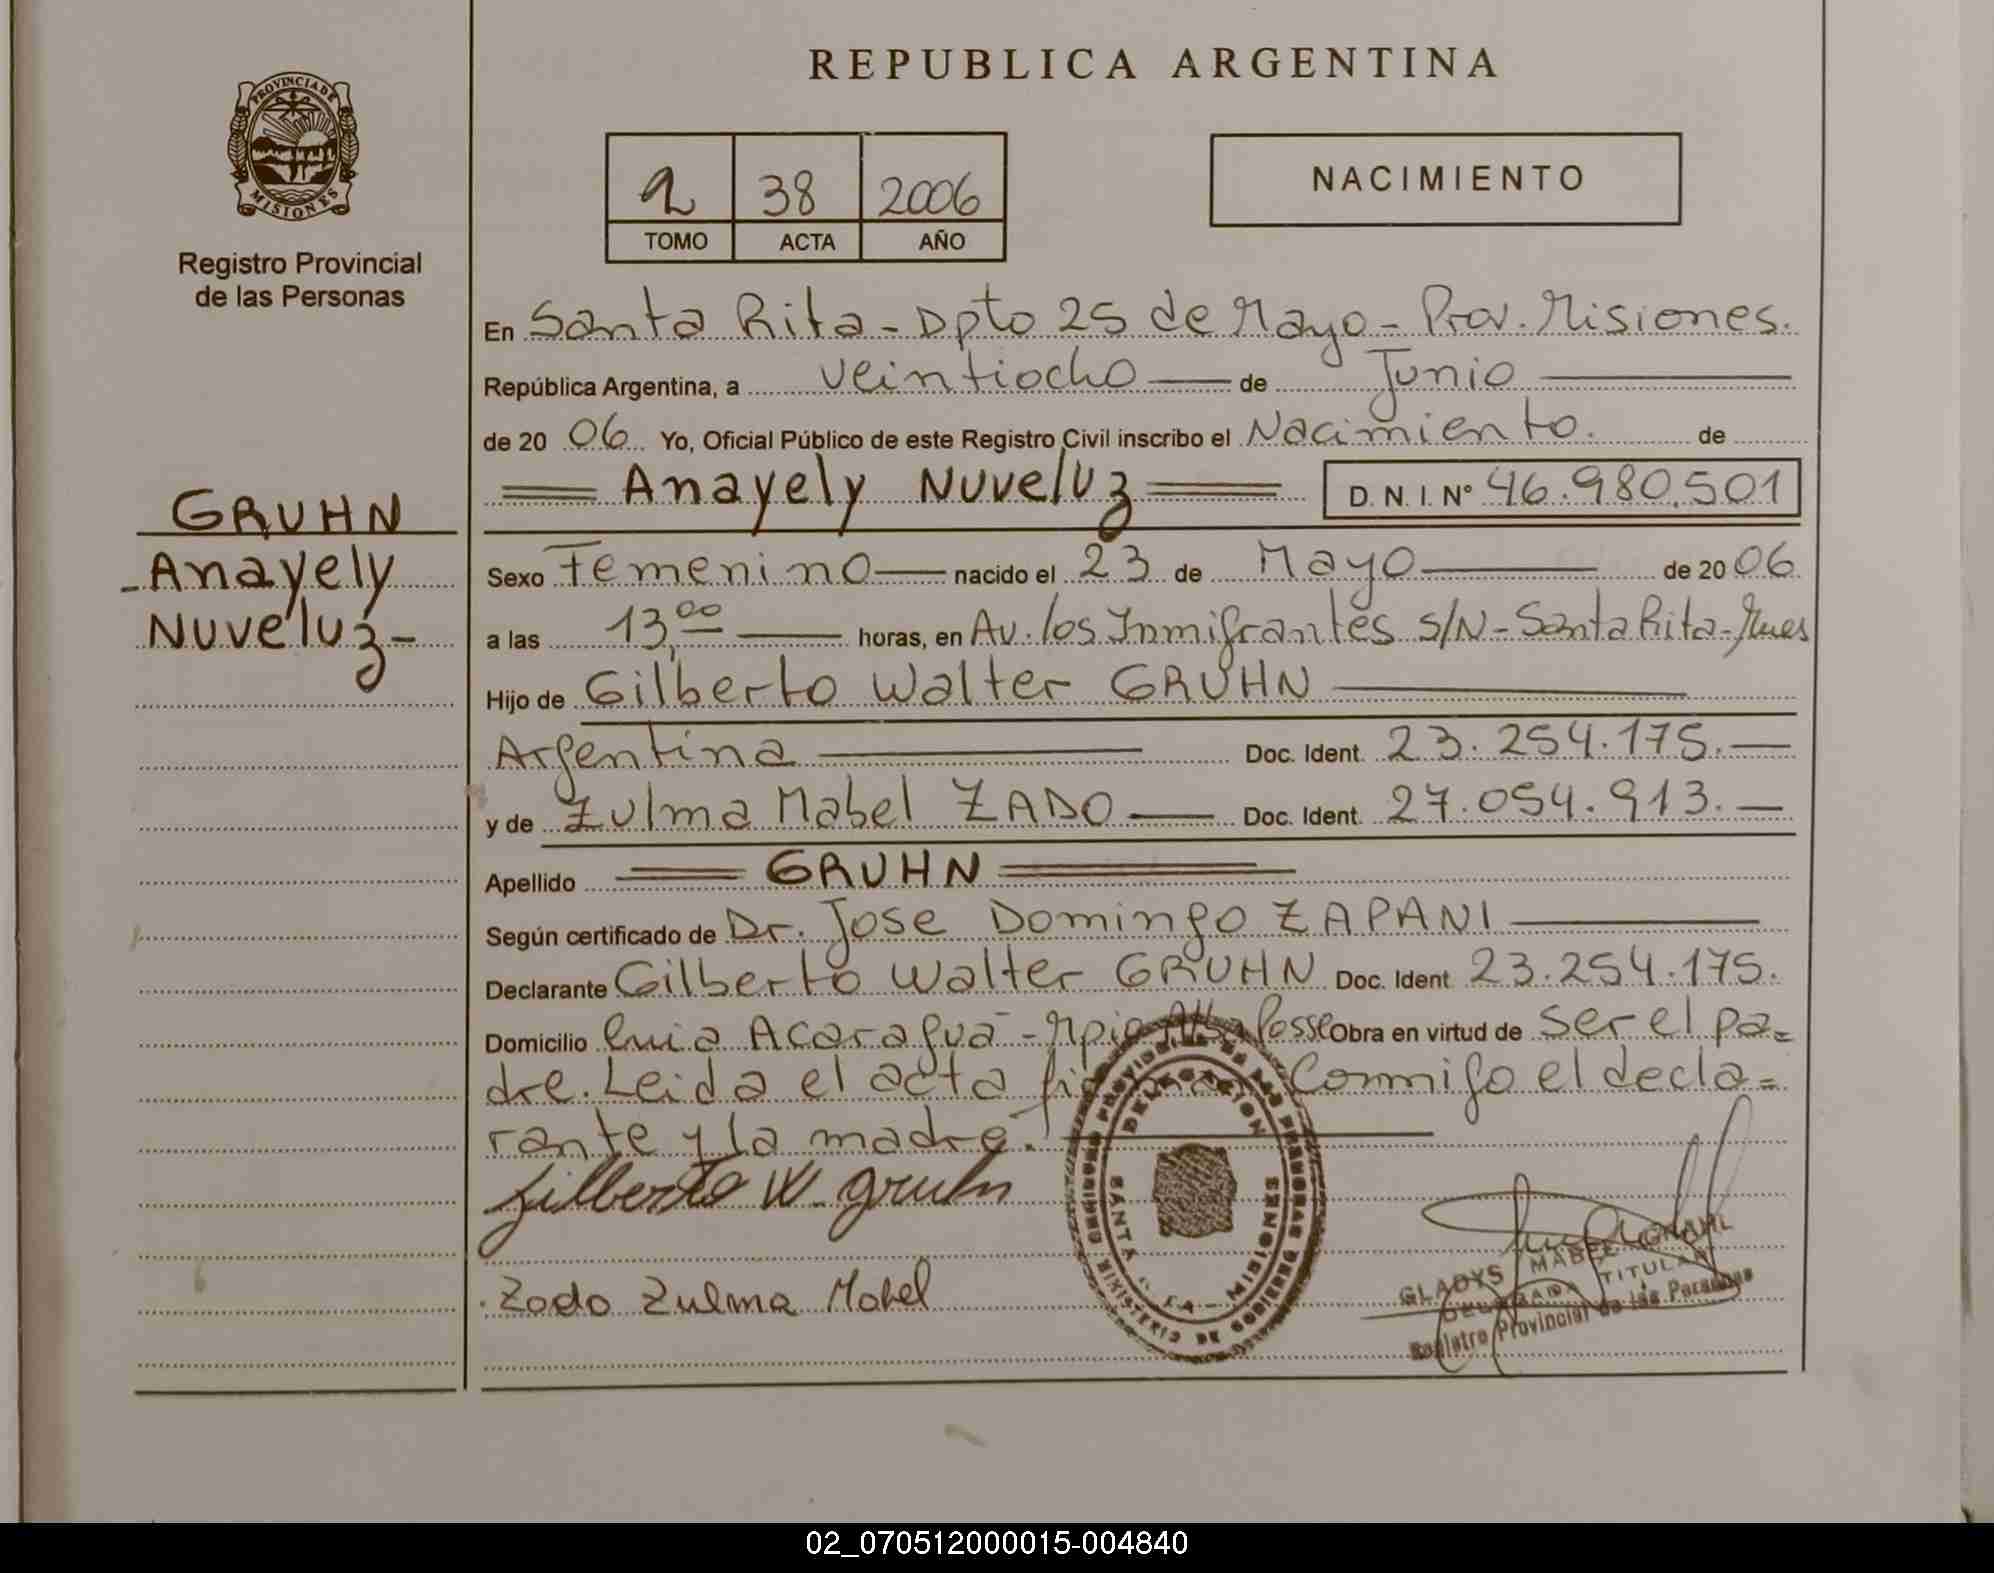 REPUBLICA ARGENTINA
PROVINCIA DE
MISIONES
Registro Provincial
de las Personas
2 38 2006
TOMO ACTA AÑO
NACIMIENTO
En Santa Rita - Dpto 25 de Mayo - Prov. Misiones.
República Argentina, a veintiocho de Junio
de 20 06 Yo, Oficial Público de este Registro Civil inscribo el Nacimiento. de
Anayely Nuveluz D. N. I. Nº 46.980.501
GRUHN
Anayely
Nuveluz
Sexo Femenino nacido el 23 de Mayo de 20 06
a las 13,00 horas, en Av. los Inmigrantes s/N - Santa Rita - Mnes
Hijo de Gilberto Walter GRUHN
Argentina Doc. Ident. 23.254.175.
y de Zulma Mabel ZADO Doc. Ident. 27.054.913.
Apellido GRUHN
Según certificado de Dr. Jose Domingo ZAPANI
Declarante Gilberto Walter GRUHN Doc. Ident 23.254.175.
Domicilio Acaraguá - Mpio Alba Posse Obra en virtud de ser el pa=
dre. Leida el acta Conmigo el decla=
rante y la madre.
Gilberto W. Gruhn
Zado Zulma Mabel
DELEGACION
SANTA RITA - MISIONES
GLADYS MABEL
DELEGADA TITULAR
Registro Provincial de las Personas
02_070512000015-004840